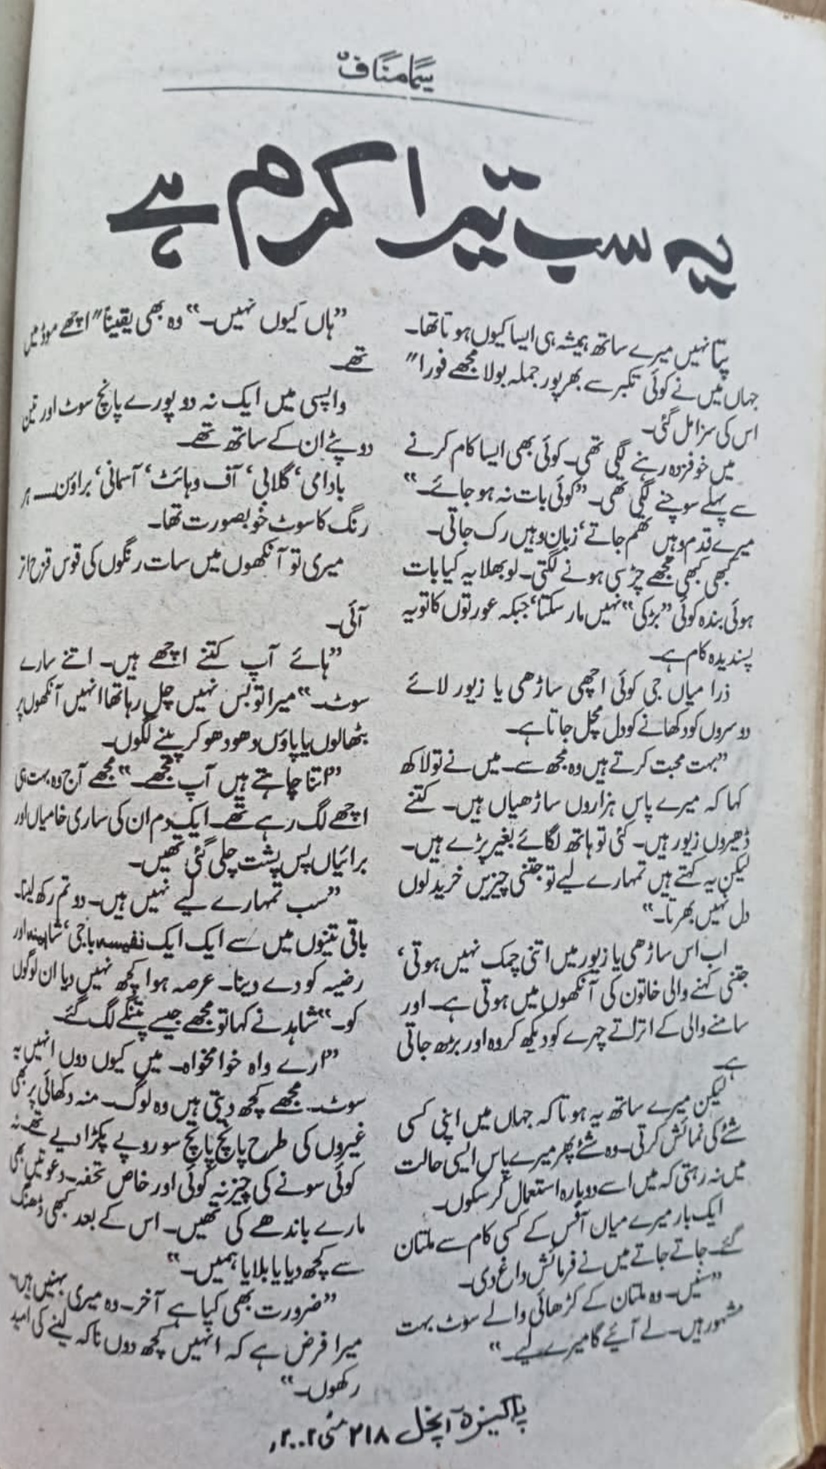 سیما مناف
یہ سب تیرا کرم ہے
پتا نہیں میرے ساتھ ہمیشہ ہی ایسا کیوں ہوتا تھا۔
جہاں میں نے کوئی تکبر سے بھرپور جملہ بولا مجھے فورا"
اس کی سزا مل گئی۔
میں خوفزدہ رہنے لگی تھی۔ کوئی بھی ایسا کام کرنے
سے پہلے سوچنے لگی تھی۔ "کوئی بات نہ ہو جائے۔"
میرے قدم وہیں تھم جاتے، زبان وہیں رک جاتی۔
کبھی کبھی مجھے چڑ سی ہونے لگتی۔ لو بھلا یہ کیا بات
ہوئی بندہ کوئی "بڑکی" نہیں مار سکتا، جبکہ عورتوں کا تو یہ
پسندیدہ کام ہے۔
ذرا میاں جی کوئی اچھی ساڑھی یا زیور لائے
دوسروں کو دکھانے کو دل مچل جاتا ہے۔
"بہت محبت کرتے ہیں وہ مجھ سے۔ میں نے تو لاکھ
کہا کہ میرے پاس ہزاروں ساڑھیاں ہیں۔ کتنے
ڈھیروں زیور ہیں۔ کئی تو ہاتھ لگائے بغیر پڑے ہیں۔
لیکن یہ کہتے ہیں تمہارے لیے تو جتنی چیزیں خرید لوں
دل نہیں بھرتا۔"
اب اس ساڑھی یا زیور میں اتنی چمک نہیں ہوتی،
جتنی کہنے والی خاتون کی آنکھوں میں ہوتی ہے۔ اور
سامنے والی کے اترتے چہرے کو دیکھ کر وہ اور بڑھ جاتی
ہے۔
لیکن میرے ساتھ یہ ہوتا کہ جہاں میں اپنی کسی
شئے کی نمائش کرتی۔ وہ شئے پھر میرے پاس ایسی حالت
میں نہ رہتی کہ میں اسے دوبارہ استعمال کر سکوں۔
ایک بار میرے میاں آفس کے کسی کام سے ملتان
گئے۔ جاتے جاتے میں نے فرمائش داغ دی۔
"سنیں۔ وہ ملتان کے کڑھائی والے سوٹ بہت
مشہور ہیں۔ لے آئیے گا میرے لیے۔"
"ہاں کیوں نہیں۔" وہ بھی یقینا" اچھے موڈ میں
تھے۔
واپسی میں ایک نہ دو پورے پانچ سوٹ اور تین
دوپٹے ان کے ساتھ تھے۔
بادامی، گلابی، آف وہائٹ، آسمانی، براؤن ـــ ہر
رنگ کا سوٹ خوبصورت تھا۔
میری تو آنکھوں میں سات رنگوں کی قوس قزح اتر
آئی۔
"ہائے آپ کتنے اچھے ہیں۔ اتنے سارے
سوٹ۔" میرا تو بس نہیں چل رہا تھا انہیں آنکھوں پر
بٹھالوں یا پاؤں دھو دھو کر پینے لگوں۔
"اتنا چاہتے ہیں آپ مجھے۔" مجھے آج وہ بہت ہی
اچھے لگ رہے تھے۔ ایک دم ان کی ساری خامیاں اور
برائیاں پس پشت چلی گئی تھیں۔
"سب تمہارے لیے نہیں ہیں۔ دو تم رکھ لینا۔
باقی تینوں میں سے ایک ایک نفیسہ باجی، شاہینہ اور
رضیہ کو دے دینا۔ عرصہ ہوا کچھ نہیں دیا ان لوگوں
کو۔" شاہد نے کہا تو مجھے جیسے پتنگے لگ گئے۔
"ارے واہ خوامخواہ۔ میں کیوں دوں انہیں یہ
سوٹ۔ مجھے کچھ دیتی ہیں وہ لوگ۔ منہ دکھائی پر بھی
غیروں کی طرح پانچ پانچ سو روپے پکڑا دیے تھے۔ نہ
کوئی سونے کی چیز نہ کوئی اور خاص تحفہ۔ دعوتیں بھی
مارے باندھے کی تھیں۔ اس کے بعد کبھی ڈھنگ
سے کچھ دیا یا بلایا ہمیں۔"
"ضرورت بھی کیا ہے آخر۔ وہ میری بہنیں ہیں۔
میرا فرض ہے کہ انہیں کچھ دوں نا کہ لینے کی امید
رکھوں۔"
پاکیزہ آنچل ۲۱۸ مئی ۲۰۰۲ء